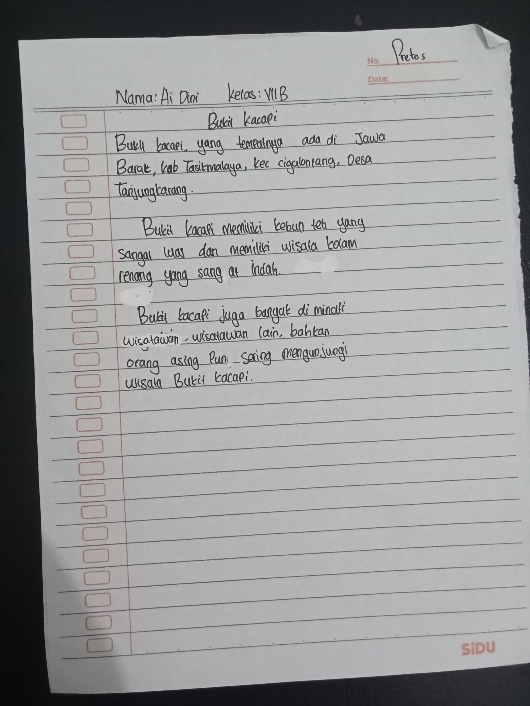 No. Pretes
Date:
Nama: Ai Dini Kelas: VII B
Bukit Kacapi
Bukit kacapi, yang tempatnya ada di Jawa
Barat, kab Tasikmalaya, kec cigalontang, Desa
Tanjungkarang.
Bukit kacapi memiliki kebun teh yang
sangat luas dan memiliki wisata kolam
renang yang sang at indah.
Bukit kacapi juga banyak di minati
wisatawan - wisatawan lain, bahkan
orang asing Pun saing mengunjungi
wisata Bukit kacapi.
SiDU